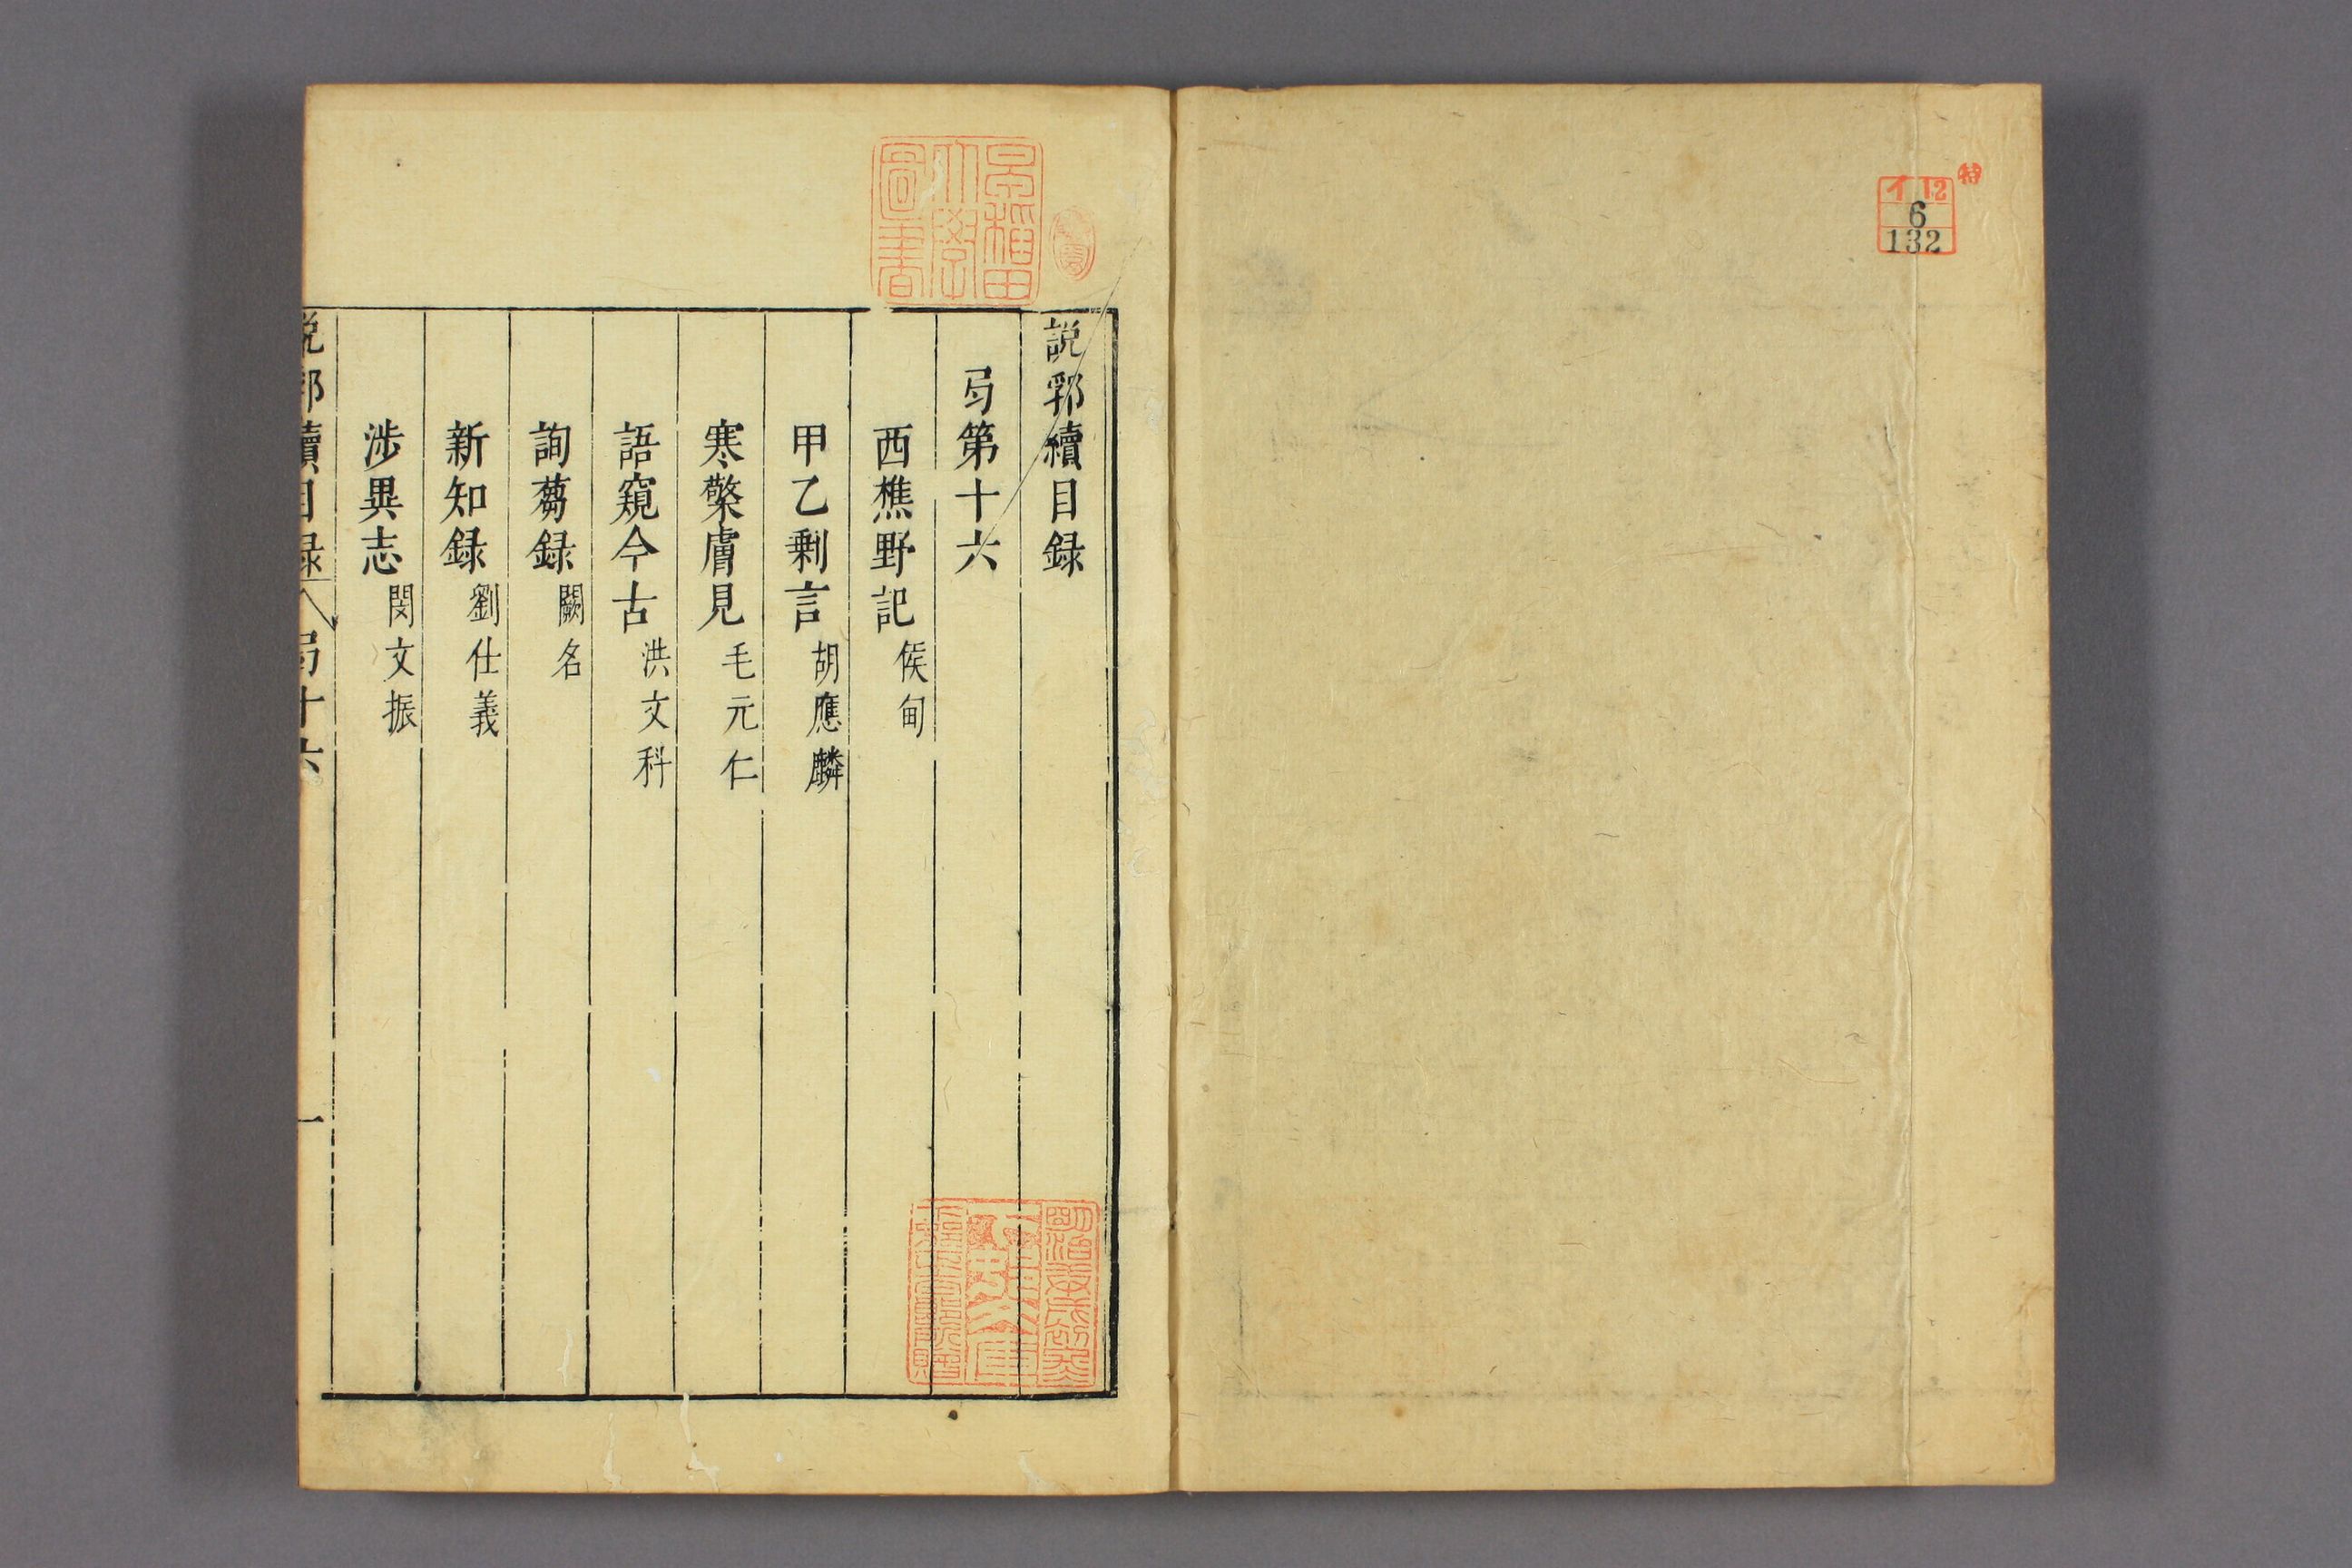 特
イ 12
6
132
説郛續目録
弓第十六
西樵野記 侯甸
甲乙剩言 胡應麟
寒檠膚見 毛元仁
語窺今古 洪文科
詢蒭録 闕名
新知録 劉仕義
涉異志 閔文振
説郛續目録 弓十六 一
早稲田
大學
圖書